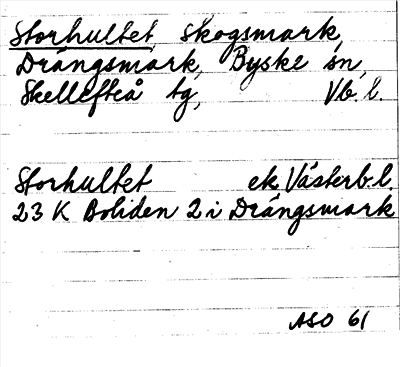 Storhultet, Skogsmark,
Drängsmark, Byske sn,
Skellefteå tg, Vb. l.
Storhultet ek. Västerb. l.
23 K Boliden 2 i Drängsmark
ASO 61